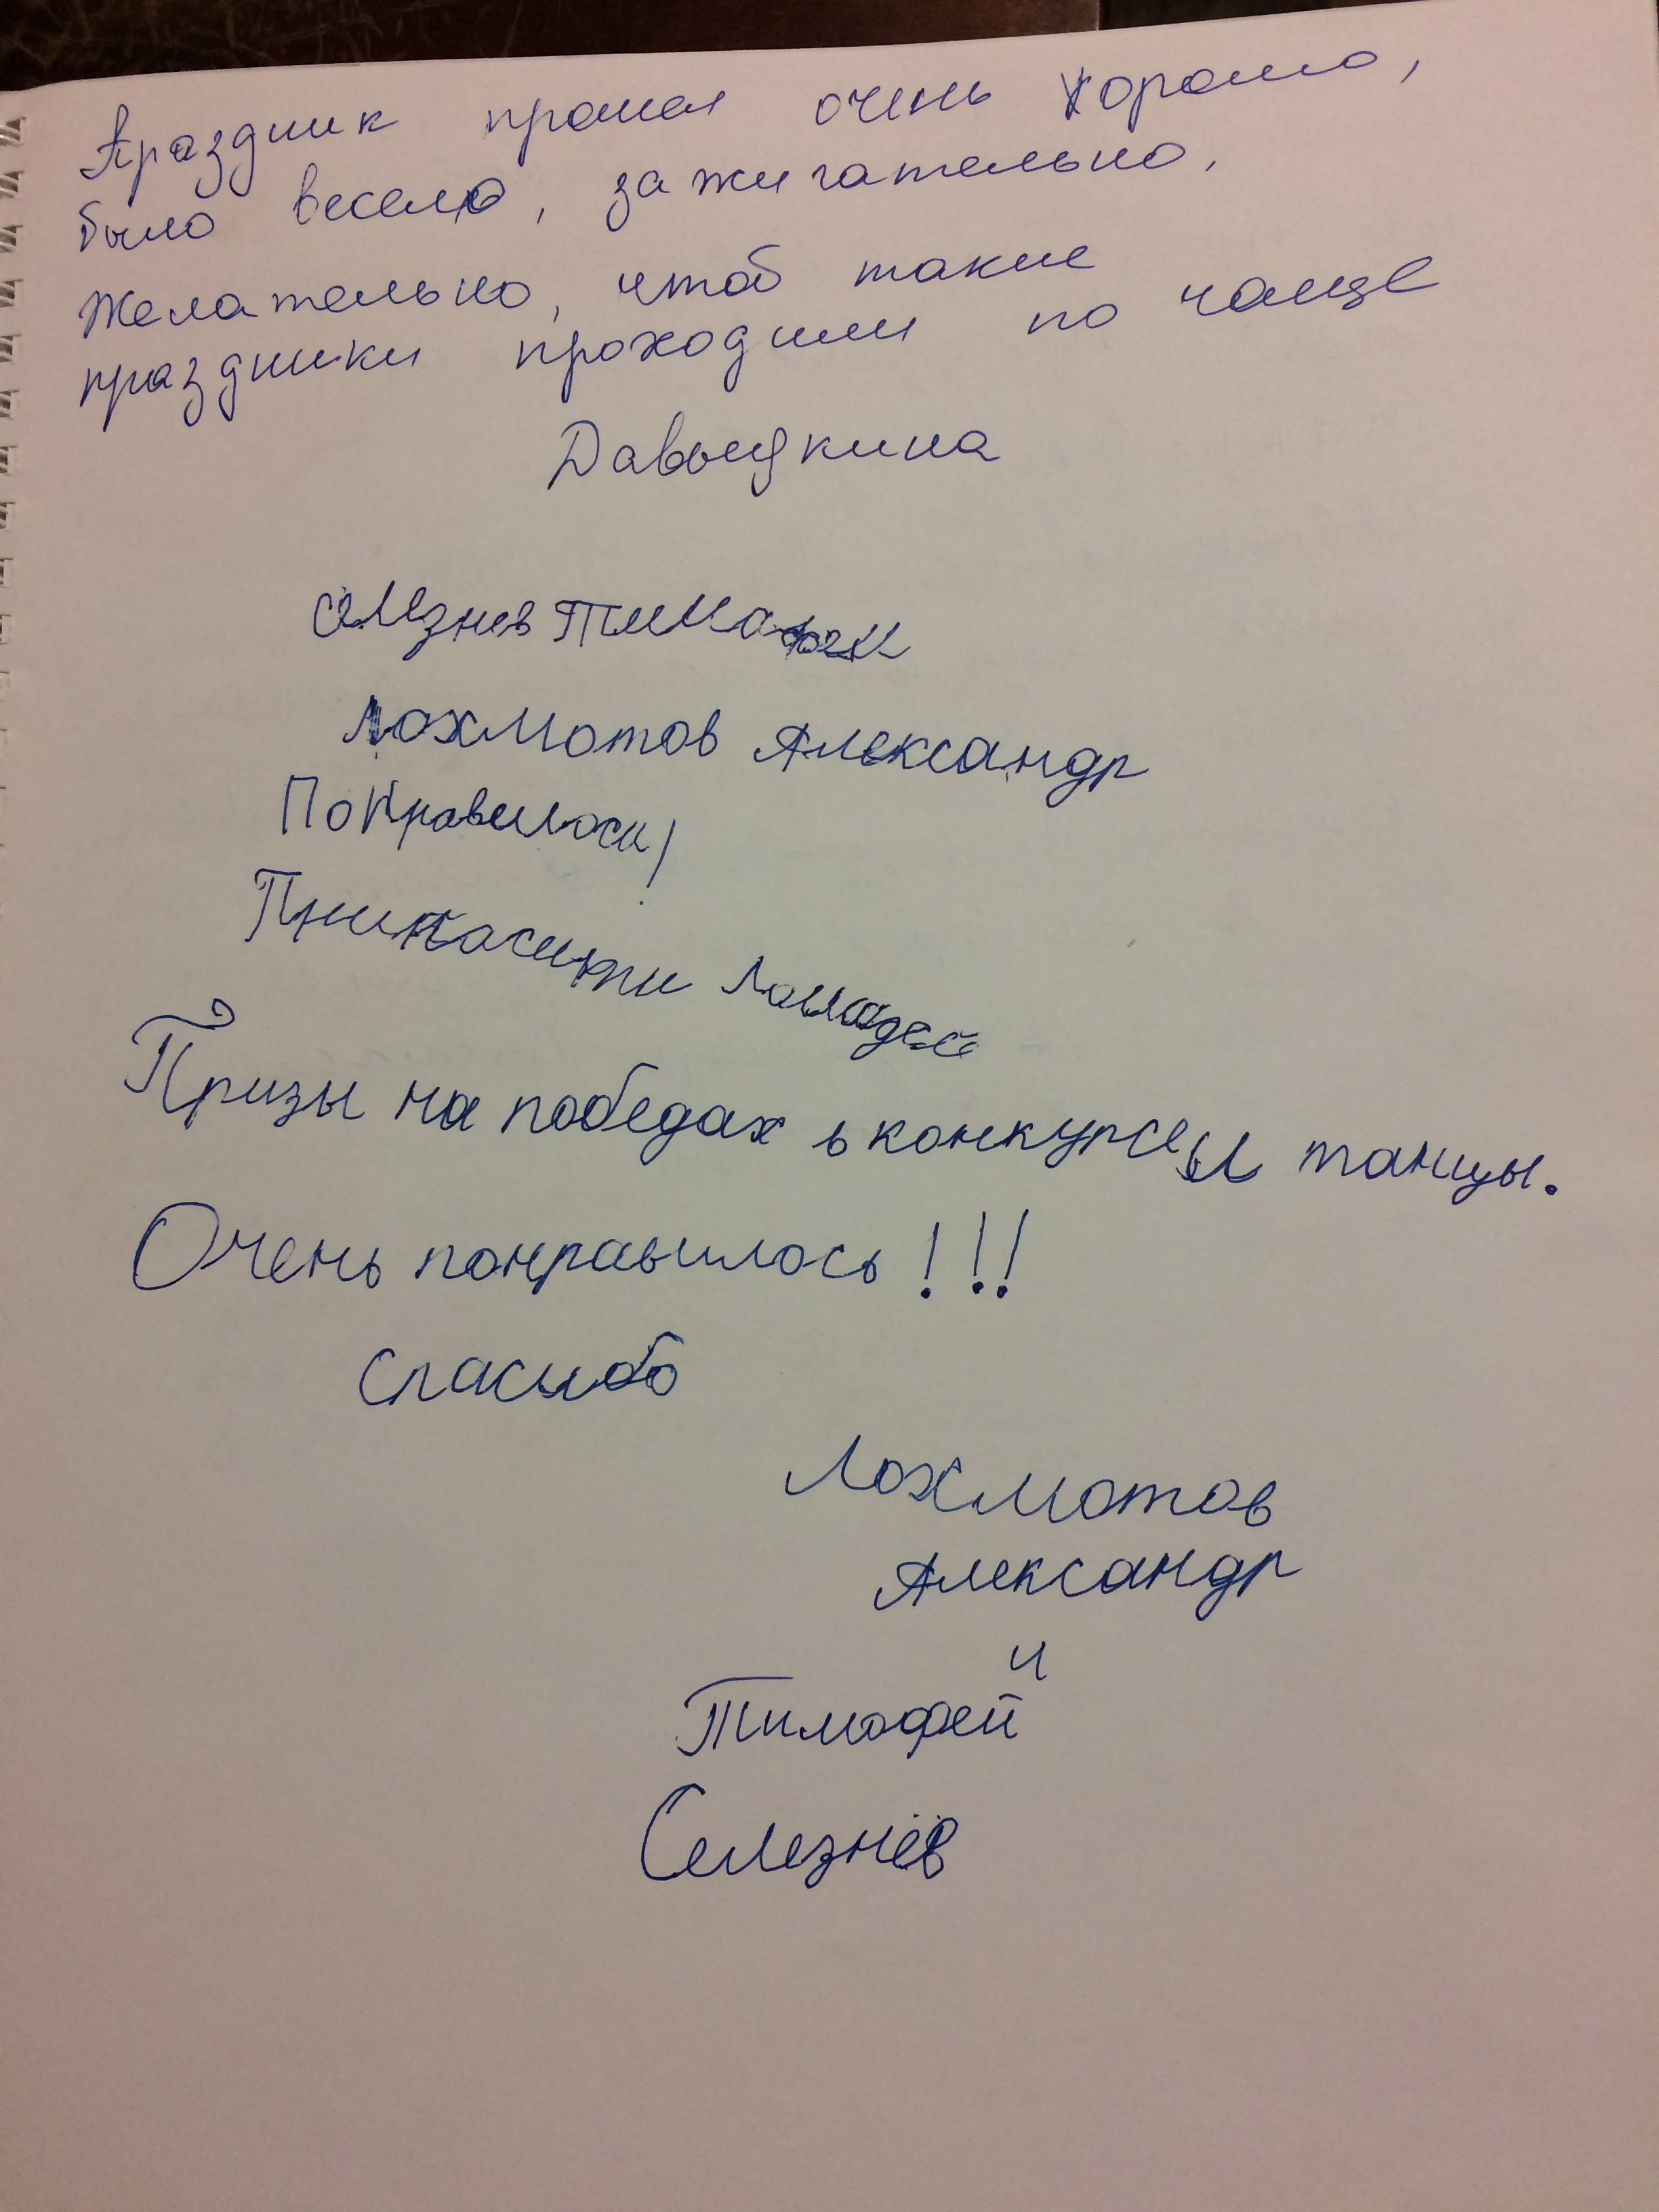 Праздник прошел очень хорошо,
было весело, зажигательно.
Желательно, чтоб такие
праздники проходили по чаще
Давыдкина
Селезнев Тимафей
Лохмотов Александр
Понравилось!
лошадей
Призы на победах в конкурсе и танцы.
Очень понравилось!!!
Спасибо
Лохмотов
Александр
и
Тимофей
Селезнёв